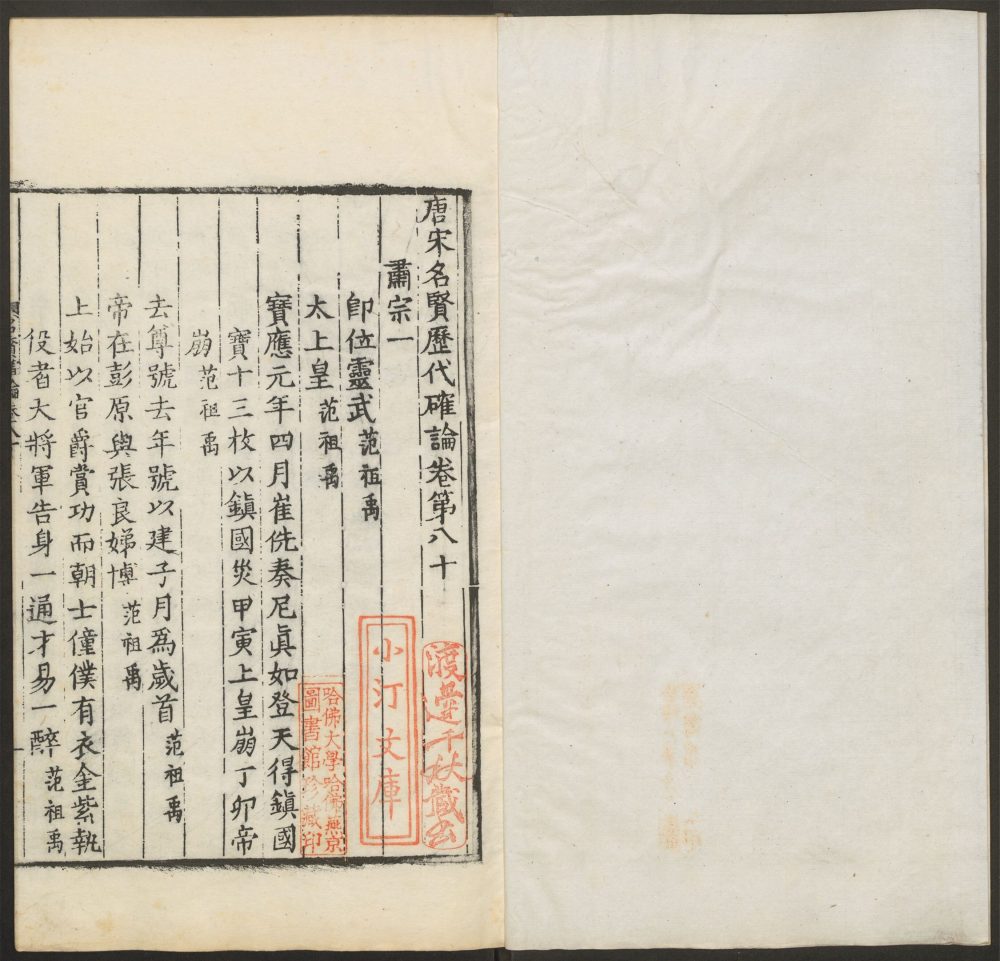 唐宋名賢歷代確論卷第八十
肅宗一
即位靈武 范祖禹
太上皇 范祖禹
寶應元年四月崔侁奏尼真如登天得鎮國
寶十三枚以鎮國災甲寅上皇崩丁卯帝
崩 范祖禹
去尊號去年號以建子月爲歲首 范祖禹
帝在彭原與張良娣博 范祖禹
上始以官爵賞功而朝士僮僕有衣金紫執
役者大將軍告身一通才易一醉 范祖禹
小汀文庫
渡邊千秋藏書
哈佛大學哈佛燕京
圖書館珍藏印